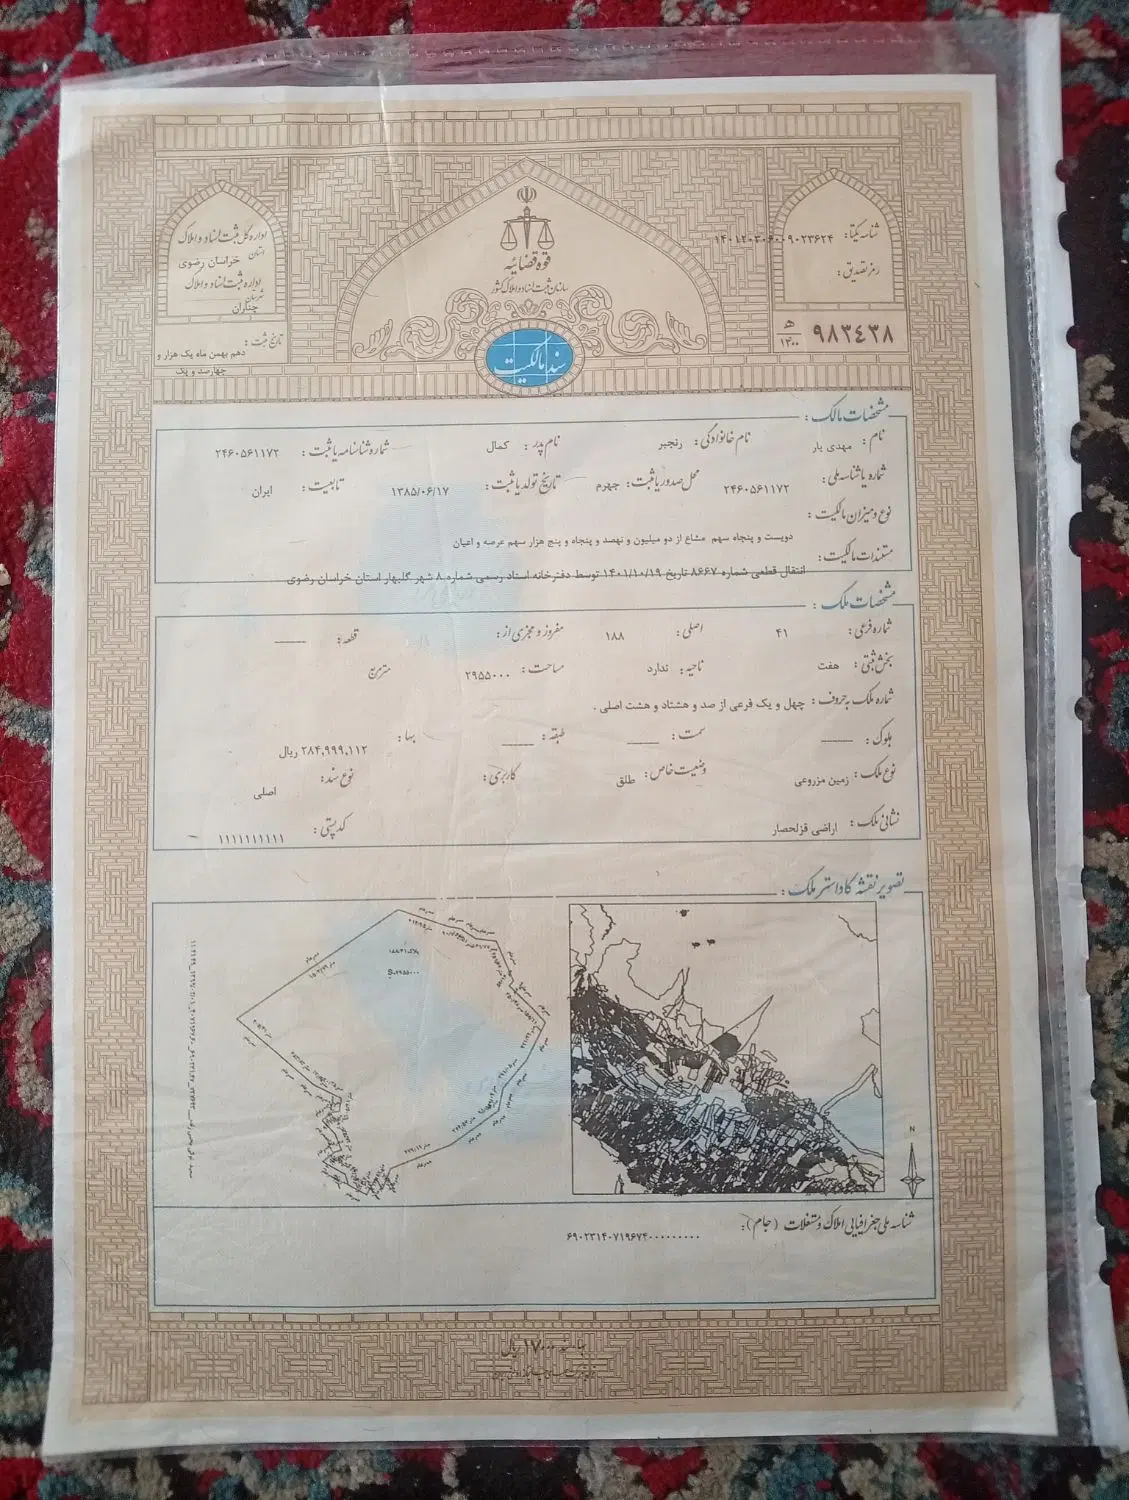 قوه قضائیه
سازمان ثبت اسناد و املاک کشور
سند مالکیت
شناسه یکتا: ۱۴۰۱۲۰۳۰۶۰۰۹۰۲۳۶۲۴
رمز تصدیق:
۹۸۳۴۳۸ ه‍ ۱۴۰۰
اداره کل ثبت اسناد و املاک
استان خراسان رضوی
اداره ثبت اسناد و املاک
شهرستان چناران
تاریخ ثبت:
دهم بهمن ماه یک هزار و
چهارصد و یک
مشخصات مالک:
نام: مهدی یار نام خانوادگی: رنجبر نام پدر: کمال شماره شناسنامه یا ثبت: ۲۴۶۰۵۶۱۱۷۲
شماره یا شناسه ملی: ۲۴۶۰۵۶۱۱۷۲ محل صدور یا ثبت: جهرم تاریخ تولد یا ثبت: ۱۳۸۵/۰۶/۱۷ تابعیت: ایران
نوع و میزان مالکیت:
دویست و پنجاه سهم مشاع از دو میلیون و نهصد و پنجاه و پنج هزار سهم عرصه و اعیان
مستندات مالکیت:
انتقال قطعی شماره ۸۶۶۷ تاریخ ۱۴۰۱/۱۰/۱۹ توسط دفترخانه اسناد رسمی شماره ۸ شهر گلبهار استان خراسان رضوی
مشخصات ملک:
شماره فرعی: ۴۱ اصلی: ۱۸۸ مفروز و مجزی از: قطعه: ——
بخش ثبتی: هفت ناحیه: ندارد مساحت: ۲۹۵۵۰۰۰ مترمربع
شماره ملک به حروف: چهل و یک فرعی از صد و هشتاد و هشت اصلی .
بلوک: —— سمت: —— طبقه: —— بها: ۲۸۴,۹۹۹,۱۱۲ ریال
نوع ملک: زمین مزروعی وضعیت خاص: طلق کاربری: نوع سند: اصلی
نشانی ملک: اراضی قزلحصار کدپستی: ۱۱۱۱۱۱۱۱۱۱
تصویر نقشه کاداستر ملک:
پلاک:۱۸۸/۴۱
S=۲۹۵۵۰۰۰
N
شناسه ملی جغرافیایی املاک و مستغلات (جام):
۶۹۰۲۳۱۴۰۷۱۹۶۷۴۰۰۰۰۰۰۰۰۰